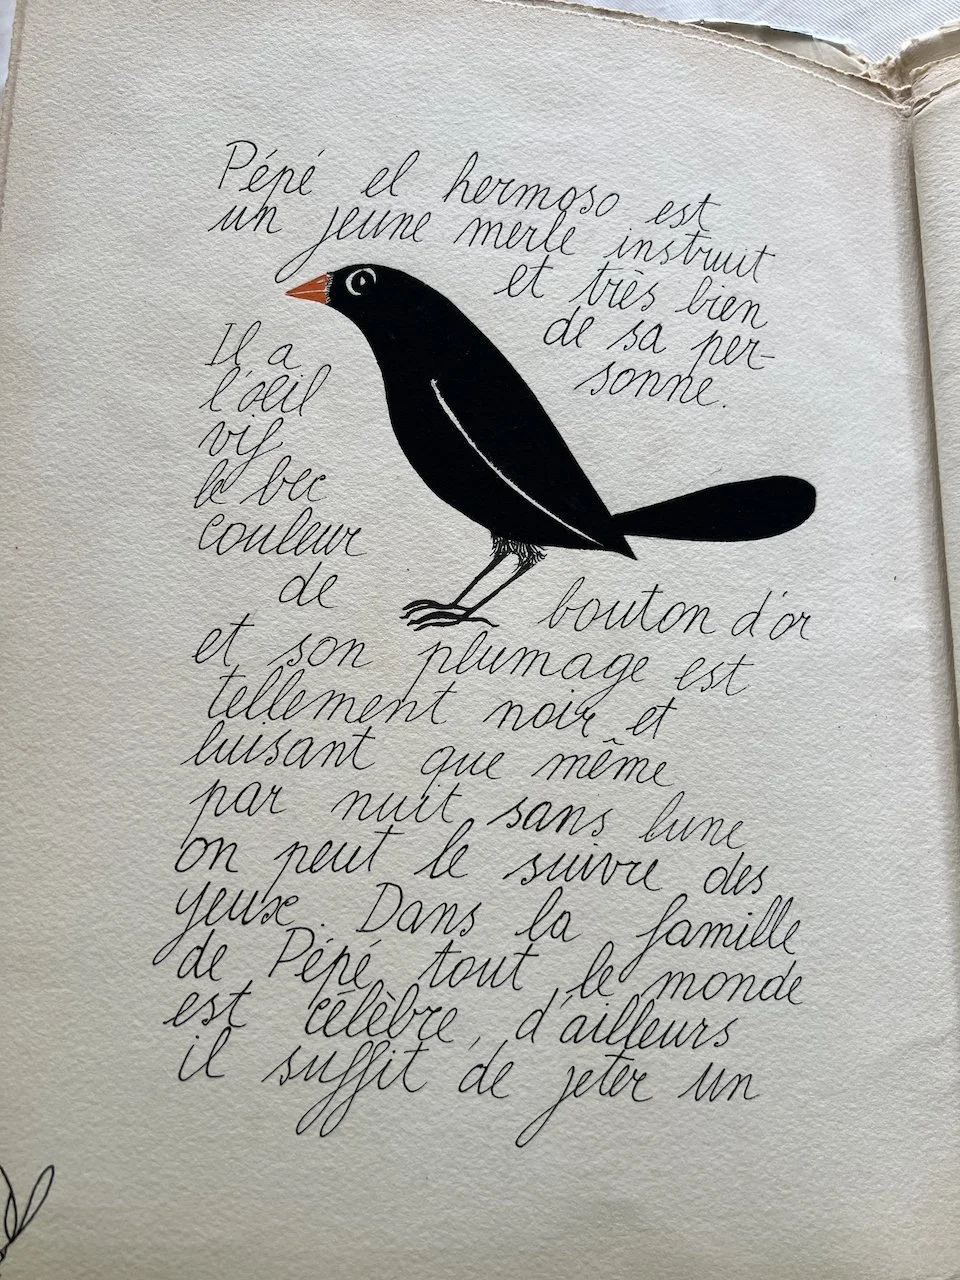 Pépé el hermoso est
un jeune merle instruit
et très bien
de sa per-
sonne.
Il a
l'œil
vif
le bec
couleur
de bouton d'or
et son plumage est
tellement noir et
luisant que même
par nuit sans lune
on peut le suivre des
yeux. Dans la famille
de Pépé, tout le monde
est célèbre, d'ailleurs
il suffit de jeter un